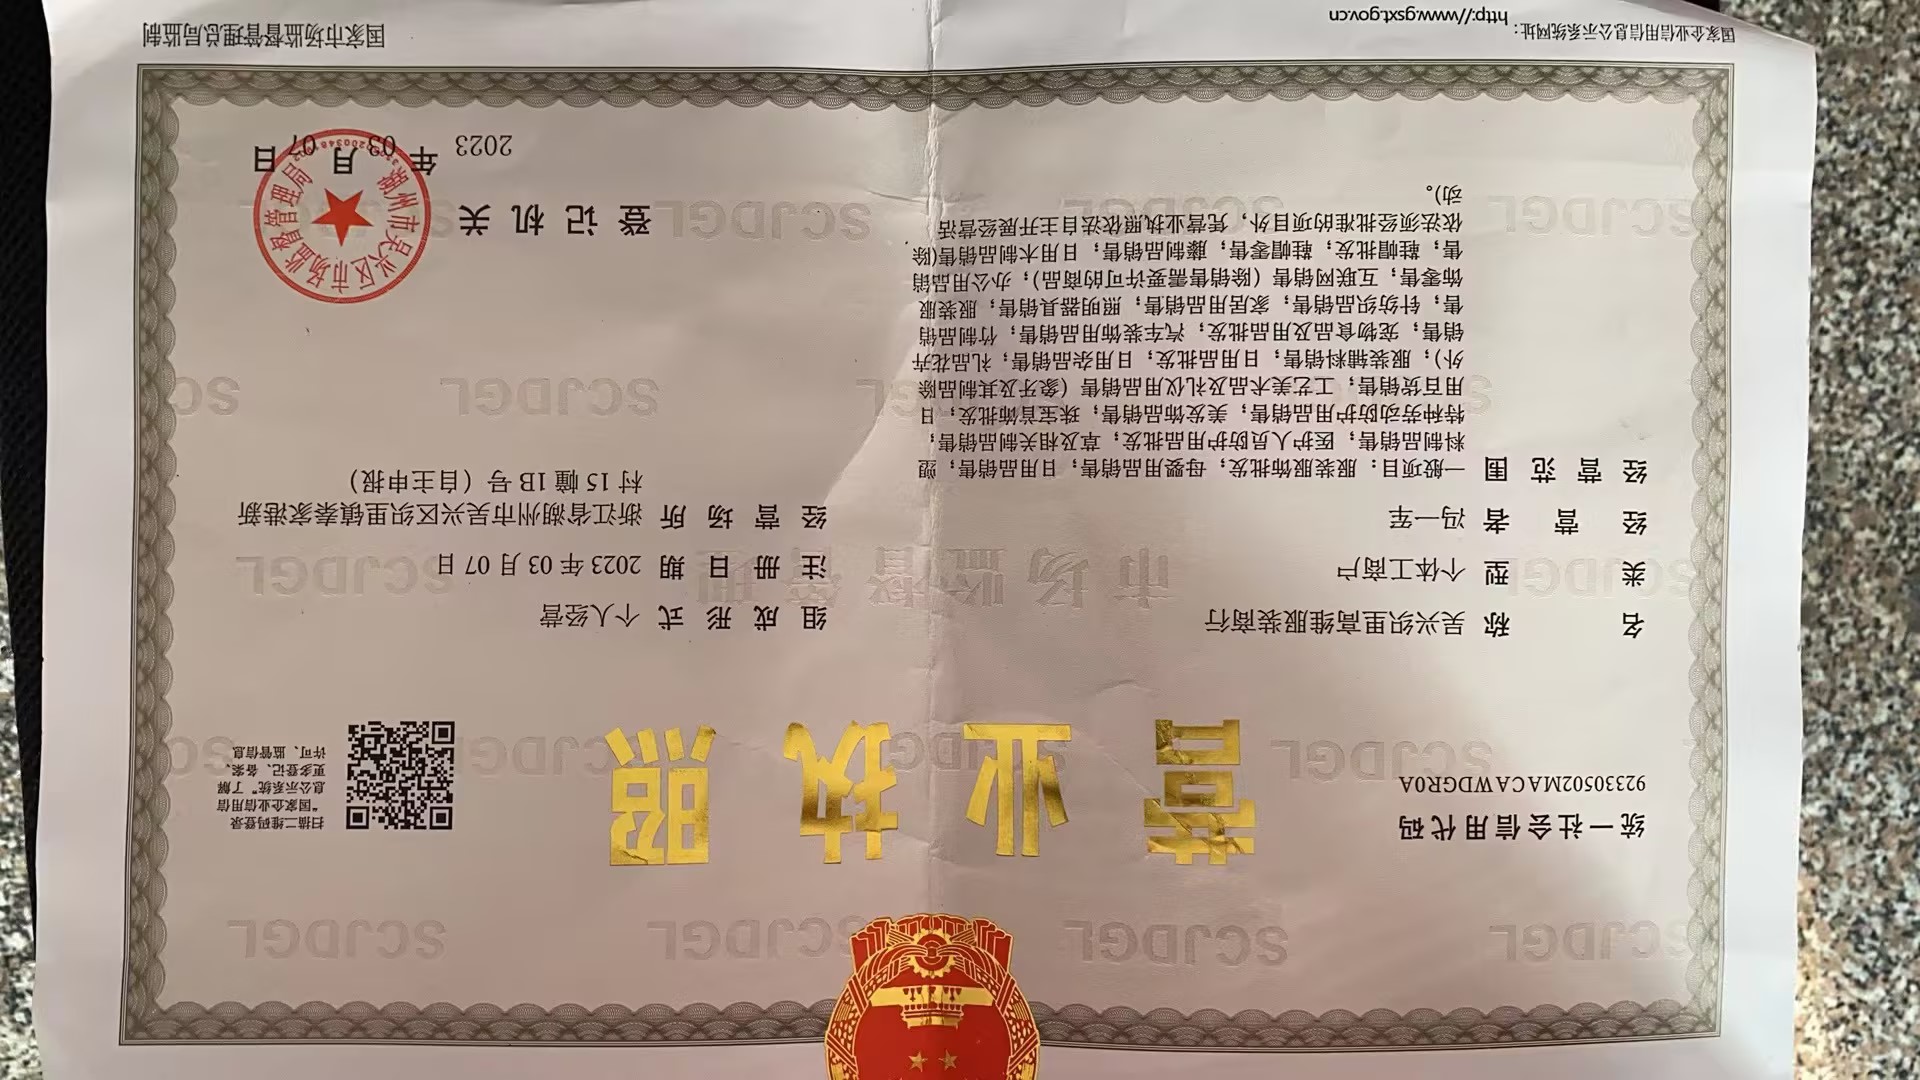 统一社会信用代码
92330502MACAWDGR0A
营业执照
扫描二维码登录
“国家企业信用信
息公示系统”了解
更多登记、备案、
许可、监管信息
名称 吴兴织里高维服装商行
类型 个体工商户
经营者 冯一军
经营范围 一般项目：服装服饰批发；母婴用品销售；日用品销售；塑
料制品销售；医护人员防护用品批发；草及相关制品销售；
特种劳动防护用品销售；美发饰品销售；珠宝首饰批发；日
用百货销售；工艺美术品及礼仪用品销售（象牙及其制品除
外）；服装辅料销售；日用品批发；日用杂品销售；礼品花卉
销售；宠物食品及用品批发；汽车装饰用品销售；竹制品销
售；针纺织品销售；家居用品销售；照明器具销售；服装服
饰零售；互联网销售（除销售需要许可的商品）；办公用品销
售；鞋帽批发；鞋帽零售；藤制品销售；日用木制品销售(除
依法须经批准的项目外，凭营业执照依法自主开展经营活
动)。
组成形式 个人经营
注册日期 2023年03月07日
经营场所 浙江省湖州市吴兴区织里镇秦家港新
村15幢1B号（自主申报）
登记机关
湖州市吴兴区市场监督管理局
2023年03月07日
国家企业信用信息公示系统网址：http://www.gsxt.gov.cn
国家市场监督管理总局监制
市场监督管理
SCJDGL